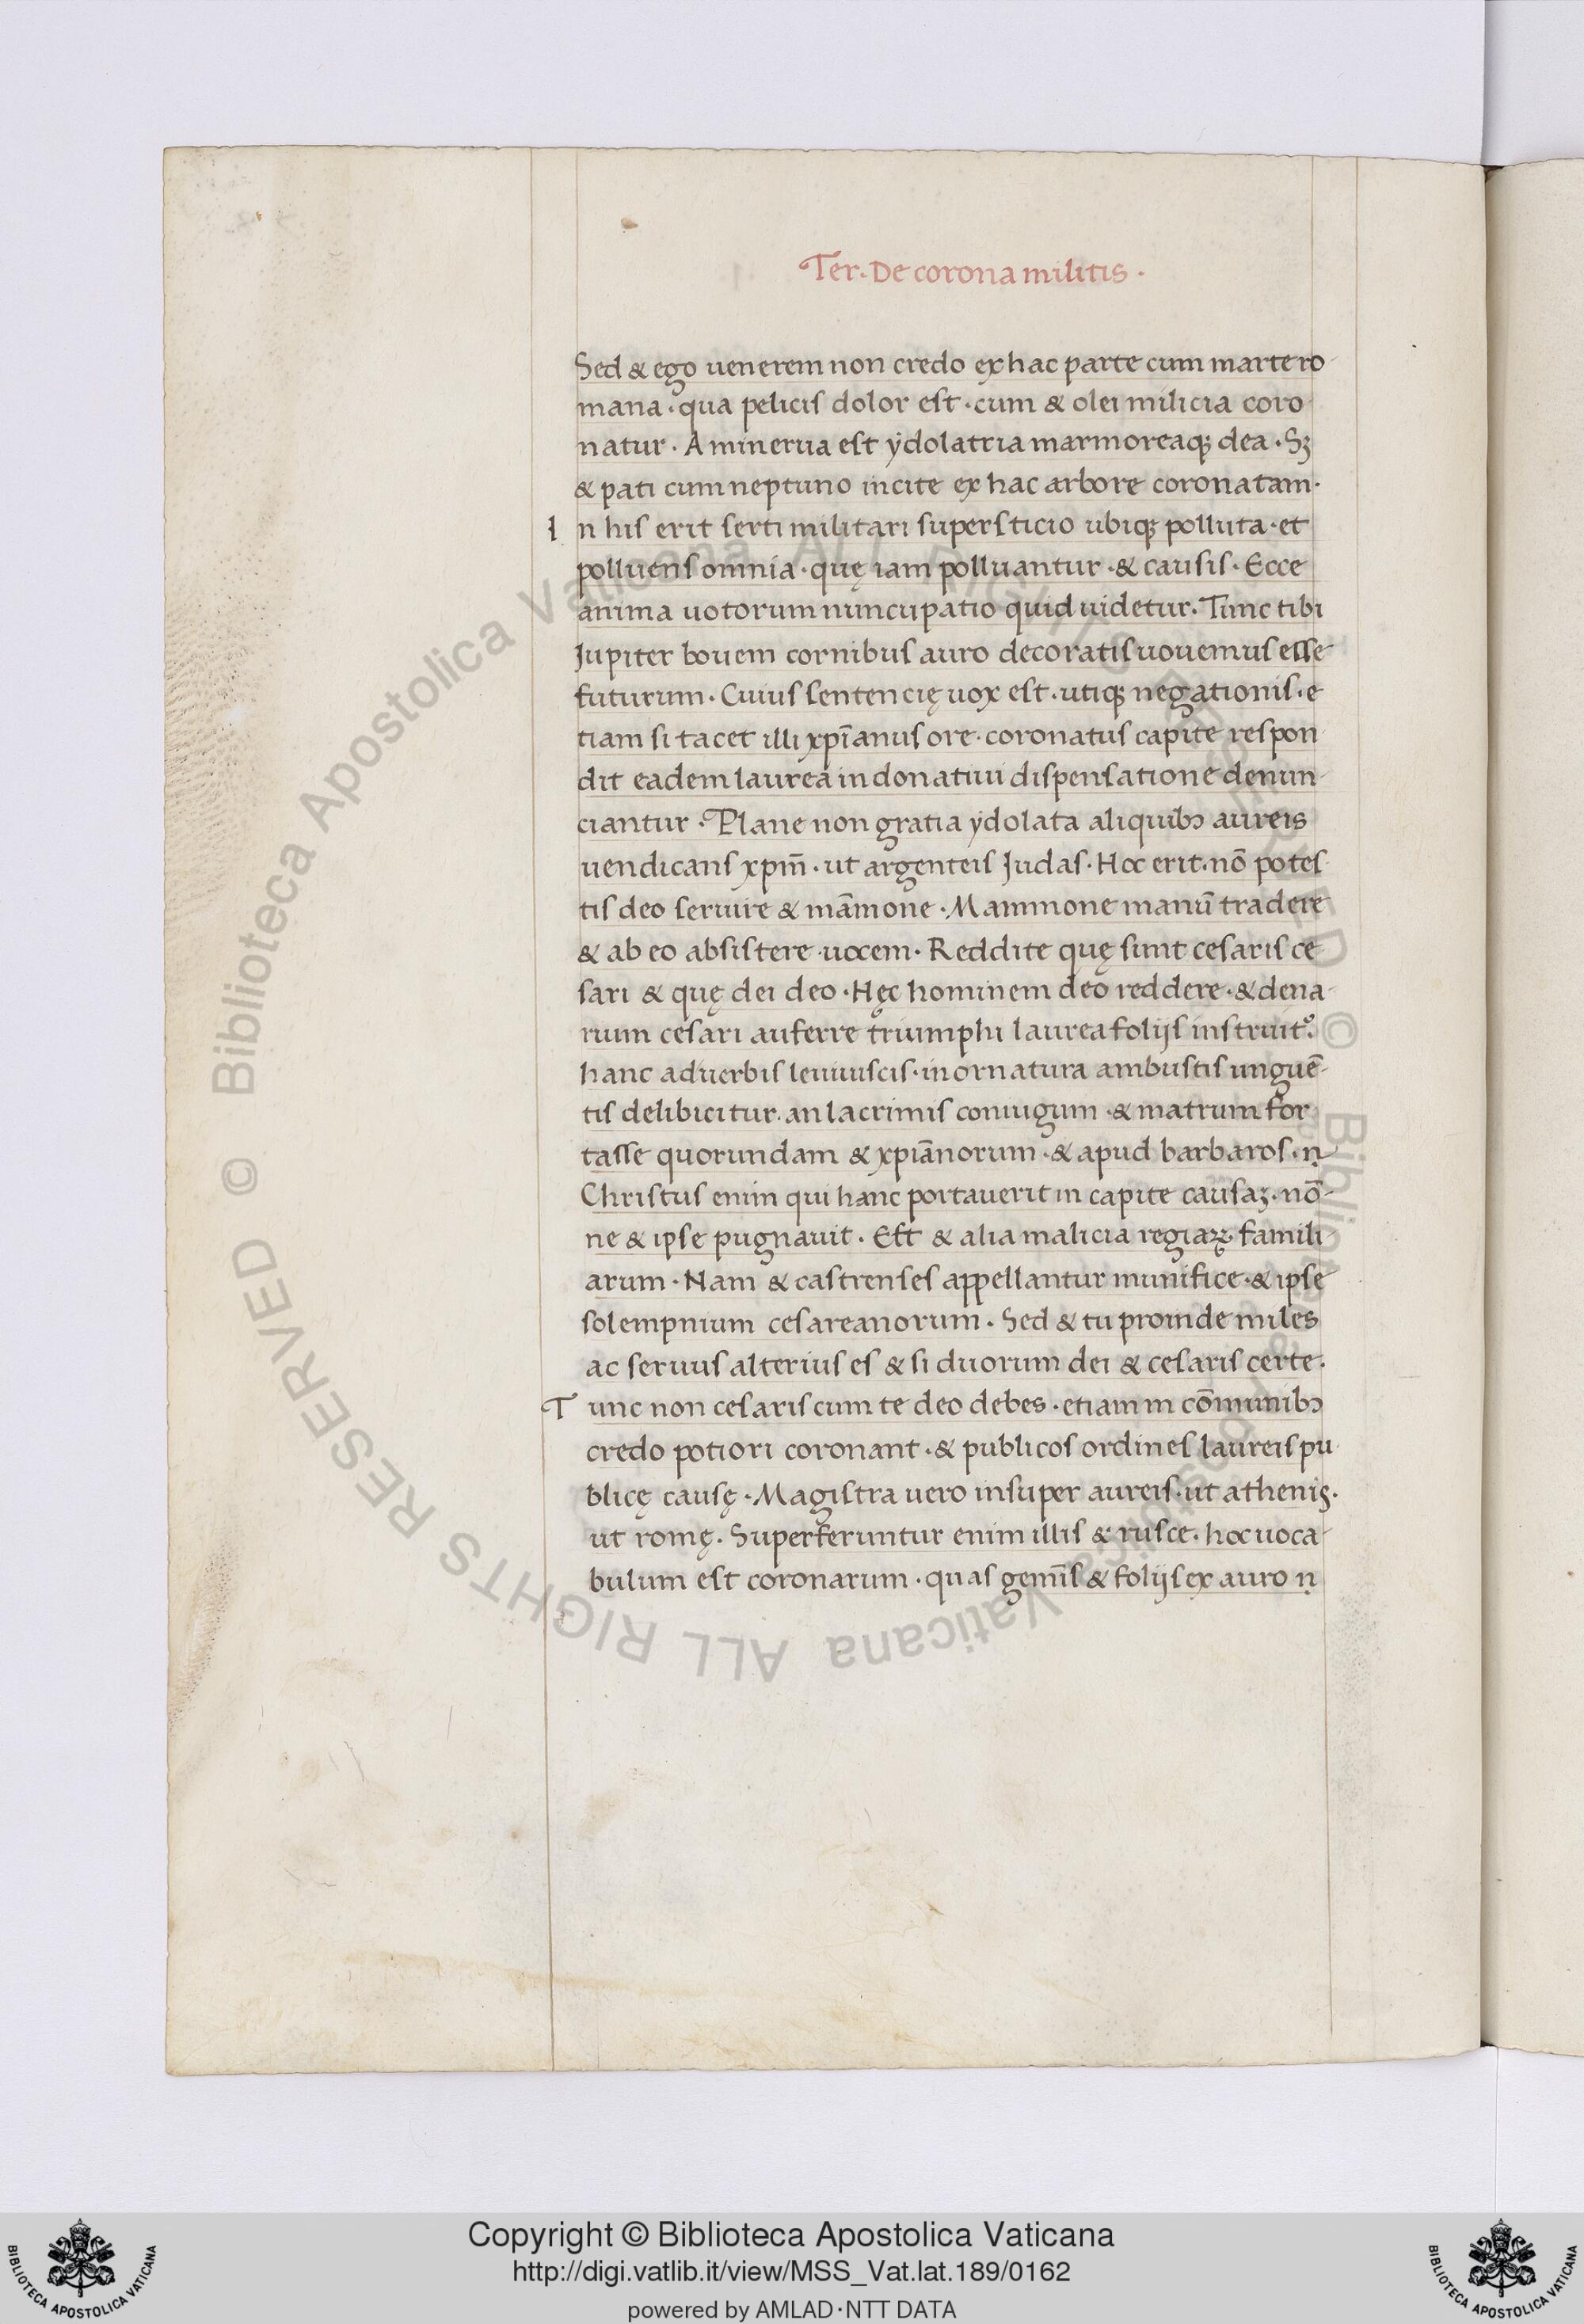 Ter. De corona militis ·
Sed & ego uenerem non credo ex hac parte cum marte ro-
mana · qua pelicis dolor est · cum & olei milicia coro-
natur · A minerua est ẏdolatria marmoreaqꝫ dea · Sꝫ
& pati cum neptuno incite ex hac arbore coronatam ·
In his erit serti militari supersticio ubiqꝫ polluta · et
polluens omnia · quę iam polluantur · & causis · Ecce
anima uotorum nuncupatio quid uidetur · Tunc tibi
Jupiter bouem cornibus auro decoratis uouemus esse
futurum · Cuius sentencię uox est · utiqꝫ negationis · e
tiam si tacet illi xp̄ianus ore · coronatus capite respon
dit eadem laurea in donatiui dispensatione denun-
ciantur · Plane non gratia ẏdolata aliquibꝰ aureis
uendicans xpm̄ · ut argenteis Judas · Hoc erit · nō potes-
tis deo seruire & mām̄one · Mammone manū tradere
& ab eo absistere uocem · Reddite quę sunt cesaris ce
sari & quę dei deo · Hęc hominem deo reddere · & dena-
rium cesari auferre triumphi laurea folijs instruit᷒ ·
hanc aduerbis leuiuiscis · inornatura ambustis unguē-
tis delibicitur · an lacrimis coniugum · & matrum for
tasse quorundam & xpiānorum · & apud barbaros · ṇ
Christus enim qui hanc portauerit in capite causaꝫ · nō-
ne & ipse pugnauit · Est & alia malicia regiaꝝ famili
arum · Nam & castrenses appellantur munifice · & ipse
solempnium cesareanorum · Sed & tu proinde miles
ac seruus alterius es & si duorum dei & cesaris certe ·
Tunc non cesaris cum te deo debes · etiam in cōmunibꝰ
credo potiori coronant · & publicos ordines laureis pu
blicę causę · Magistra uero insuper aureis · ut athenis ·
ut romę · Superferuntur enim illis & rusce · hoc uoca-
bulum est coronarum · quas gemīs & folijs ex auro ṇ
© Biblioteca Apostolica Vaticana ALL RIGHTS RESERVED © Biblioteca Apostolica Vaticana ALL RIGHTS RESERVED
Copyright © Biblioteca Apostolica Vaticana
http://digi.vatlib.it/view/MSS_Vat.lat.189/0162
powered by AMLAD·NTT DATA
BIBLIOTECA APOSTOLICA VATICANA
BIBLIOTECA APOSTOLICA VATICANA